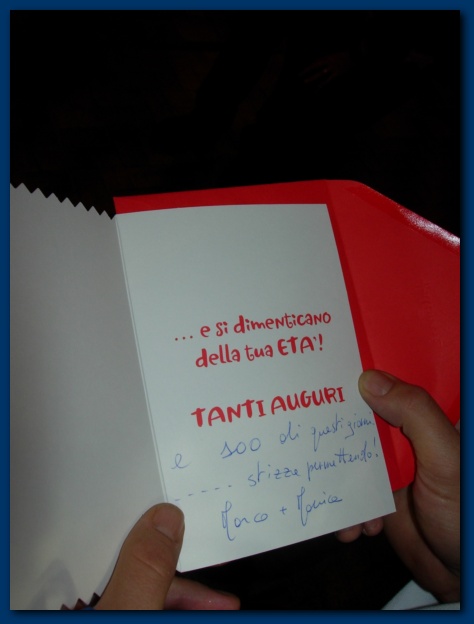 ... e si dimenticano
della tua ETA'!
TANTI AUGURI
e 100 di questi giorni
----- stizze permettendo!
Marco + Monica